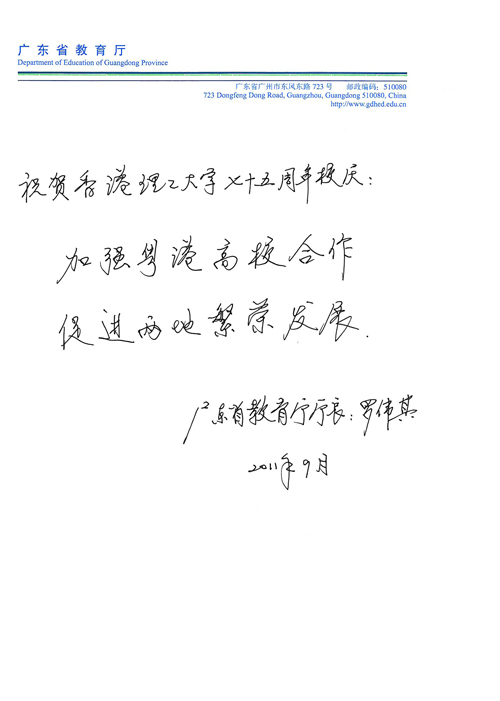 广东省教育厅
Department of Education of Guangdong Province
广东省广州市东风东路 723 号 邮政编码：510080
723 Dongfeng Dong Road, Guangzhou, Guangdong 510080, China
http://www.gdhed.edu.cn
祝贺香港理工大学七十五周年校庆：
加强粤港高校合作
促进两地繁荣发展.
广东省教育厅厅长：罗伟其
2011年9月